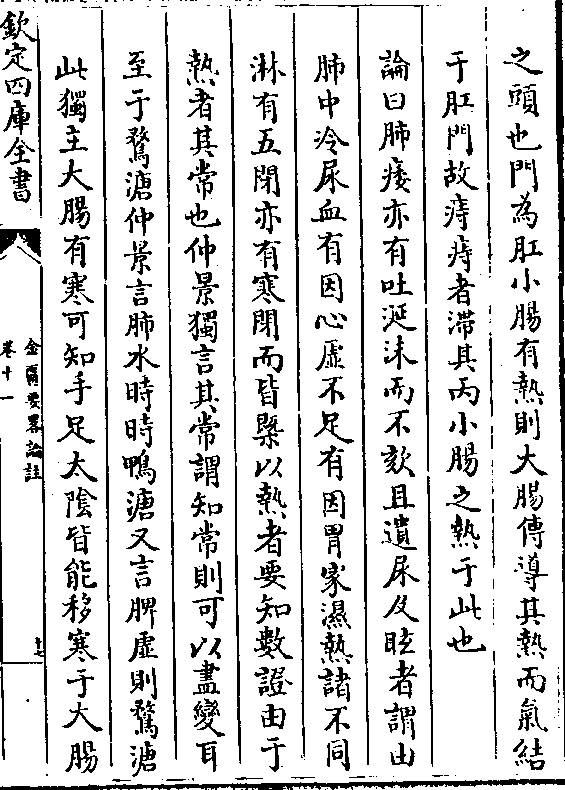 之頭也門為肛小腸有熱則大腸傳導其熱而氣結
于肛門故痔痔者滯其丙小腸之熱于此也
論曰肺痿亦有吐涎沫而不欬且遺尿及眩者謂由
肺中冷尿血有因心虛不足有因胃家濕熱諸不同
淋有五閉亦有寒閉而皆槩以熱者要知數證由于
熱者其常也仲景獨言其常謂知常則可以盡變耳
至于鶩溏仲景言肺水時時鴨溏又言脾虛則鶩溏
此獨主大腸有寒可知手足太陰皆能移寒于大腸
欽定四庫全書
金匱要畧論註
卷十一
十七